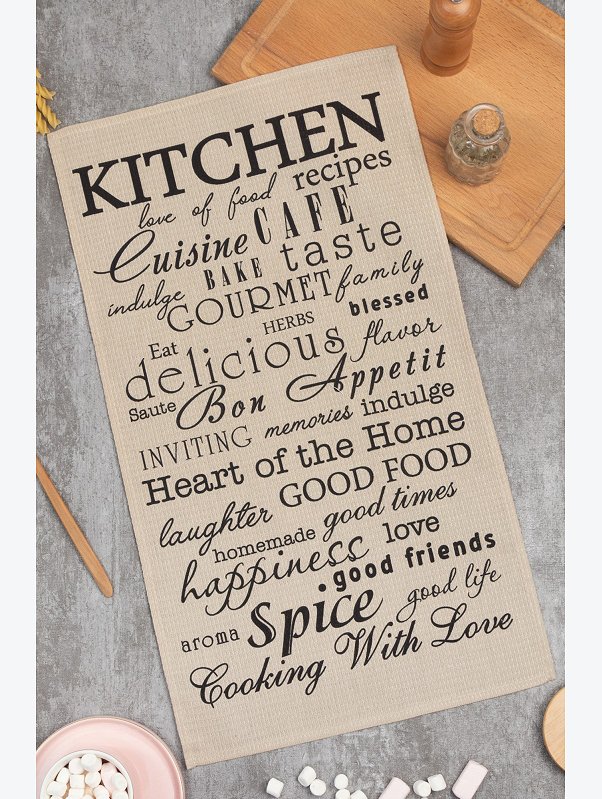 KITCHEN
love of food recipes
Cuisine CAFE
indulge BAKE taste
GOURMET family
HERBS blessed
Eat delicious flavor
Saute Bon Appetit
INVITING memories indulge
Heart of the Home
laughter GOOD FOOD
homemade good times
happiness love
good friends
aroma Spice good life
Cooking With Love